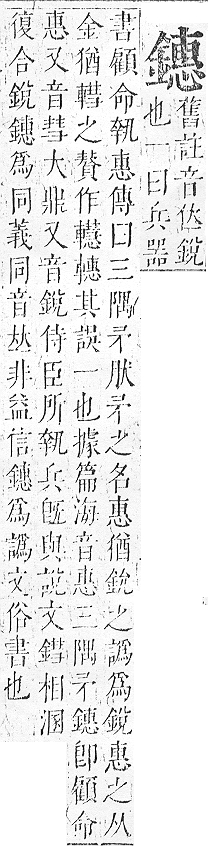 鏸
舊註音佚銳
也一曰兵器
書顧命執惠傳曰三隅矛肰矛之名惠猶銳之譌爲鋭惠之从
金猶轊之贅作轊轊其誤一也據篇海音惠三隅矛鏸卽顧命
惠又音彗大鼎又音銳侍臣所執兵旣與說文鏏相溷
復合銳鏸爲同義同音𠀤非益信鏸爲譌文俗書也